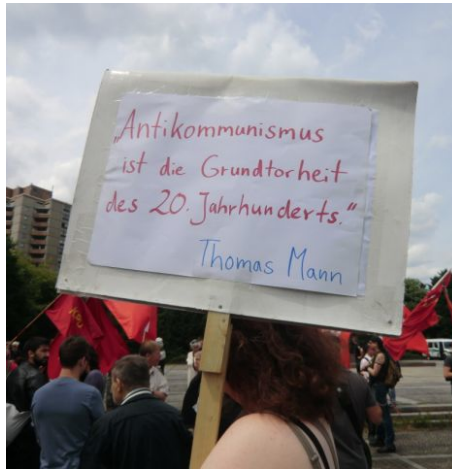 „Antikommunismus
ist die Grundtorheit
des 20. Jahrhunderts."
Thomas Mann